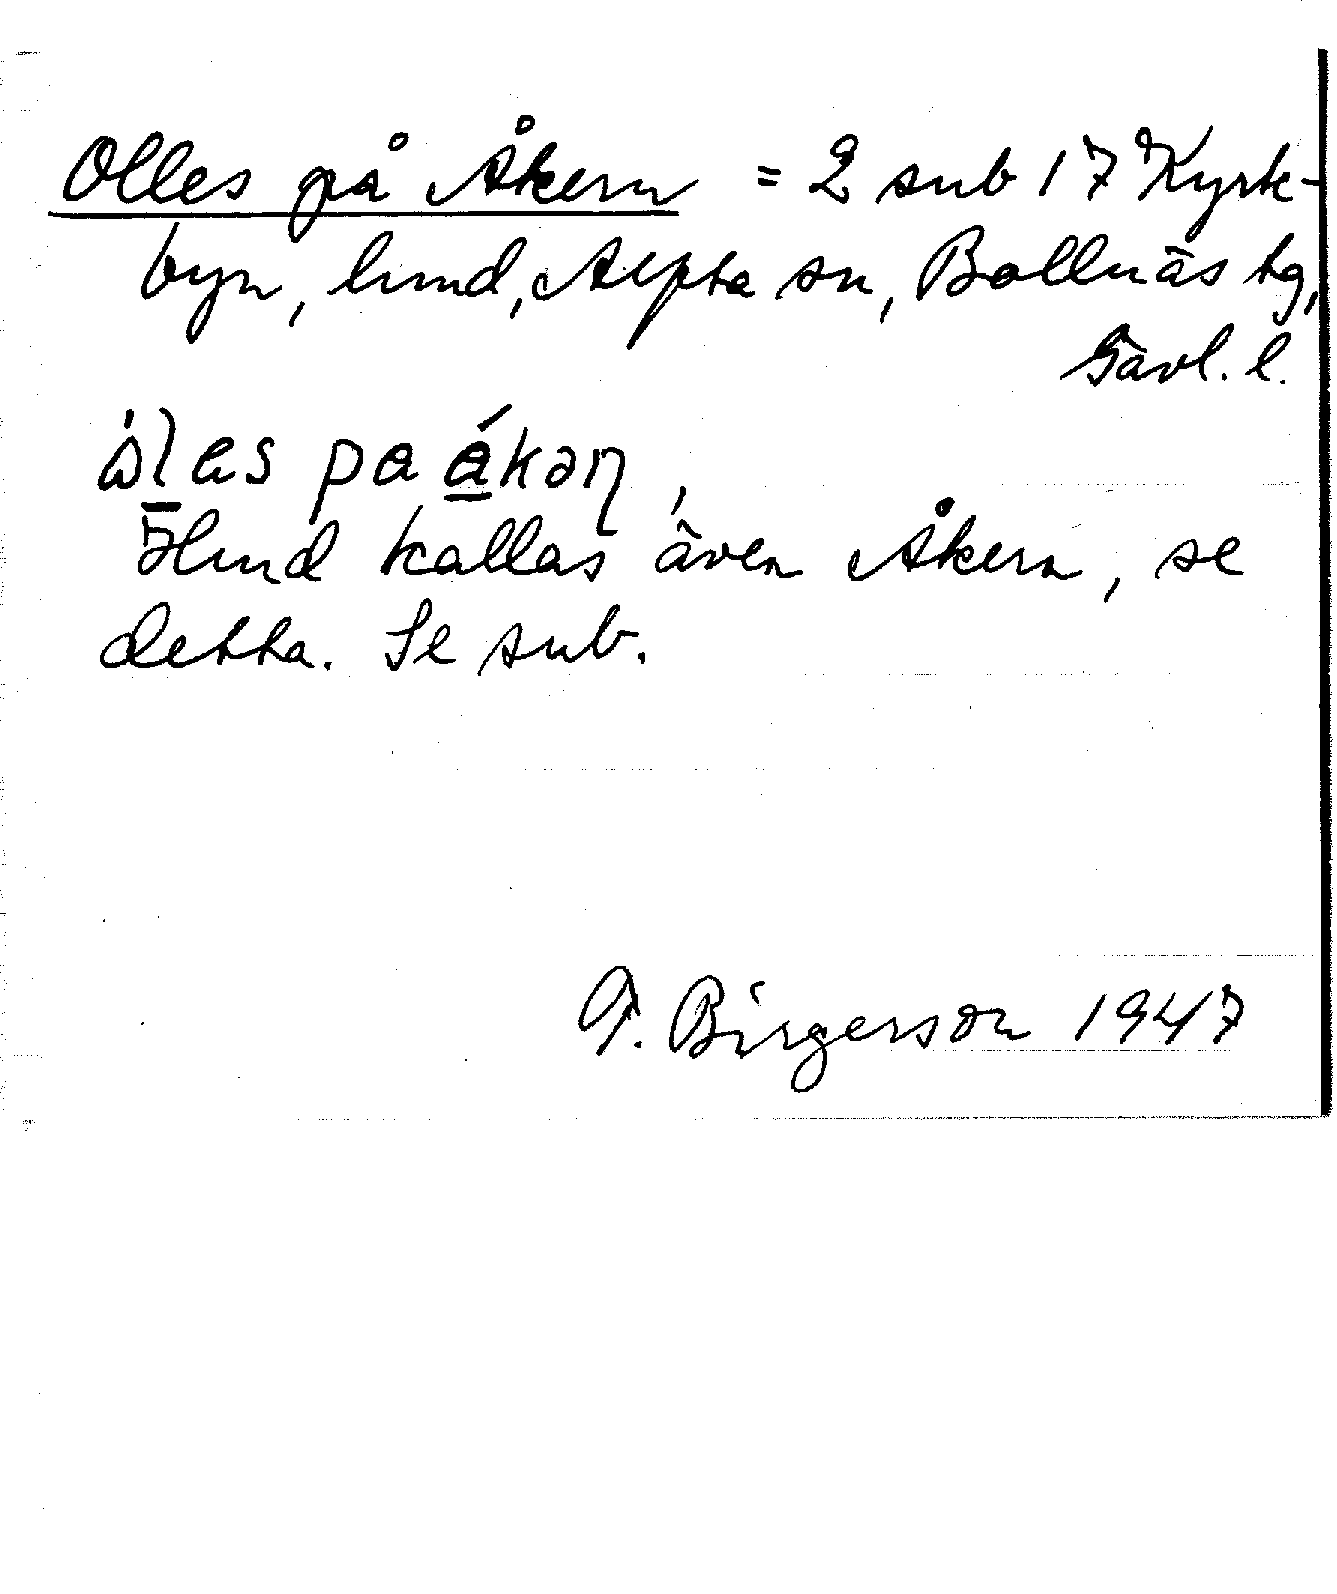 Olles på Åkern = 2 sub 17 Kyrk-
byn, hmd, Alfta sn, Bollnäs tg,
Gävl. l.
ὰl̲as pa á̲kəη,
Hmd kallas även Åkern, se
detta. Se sub.
F. Birgerson 1947